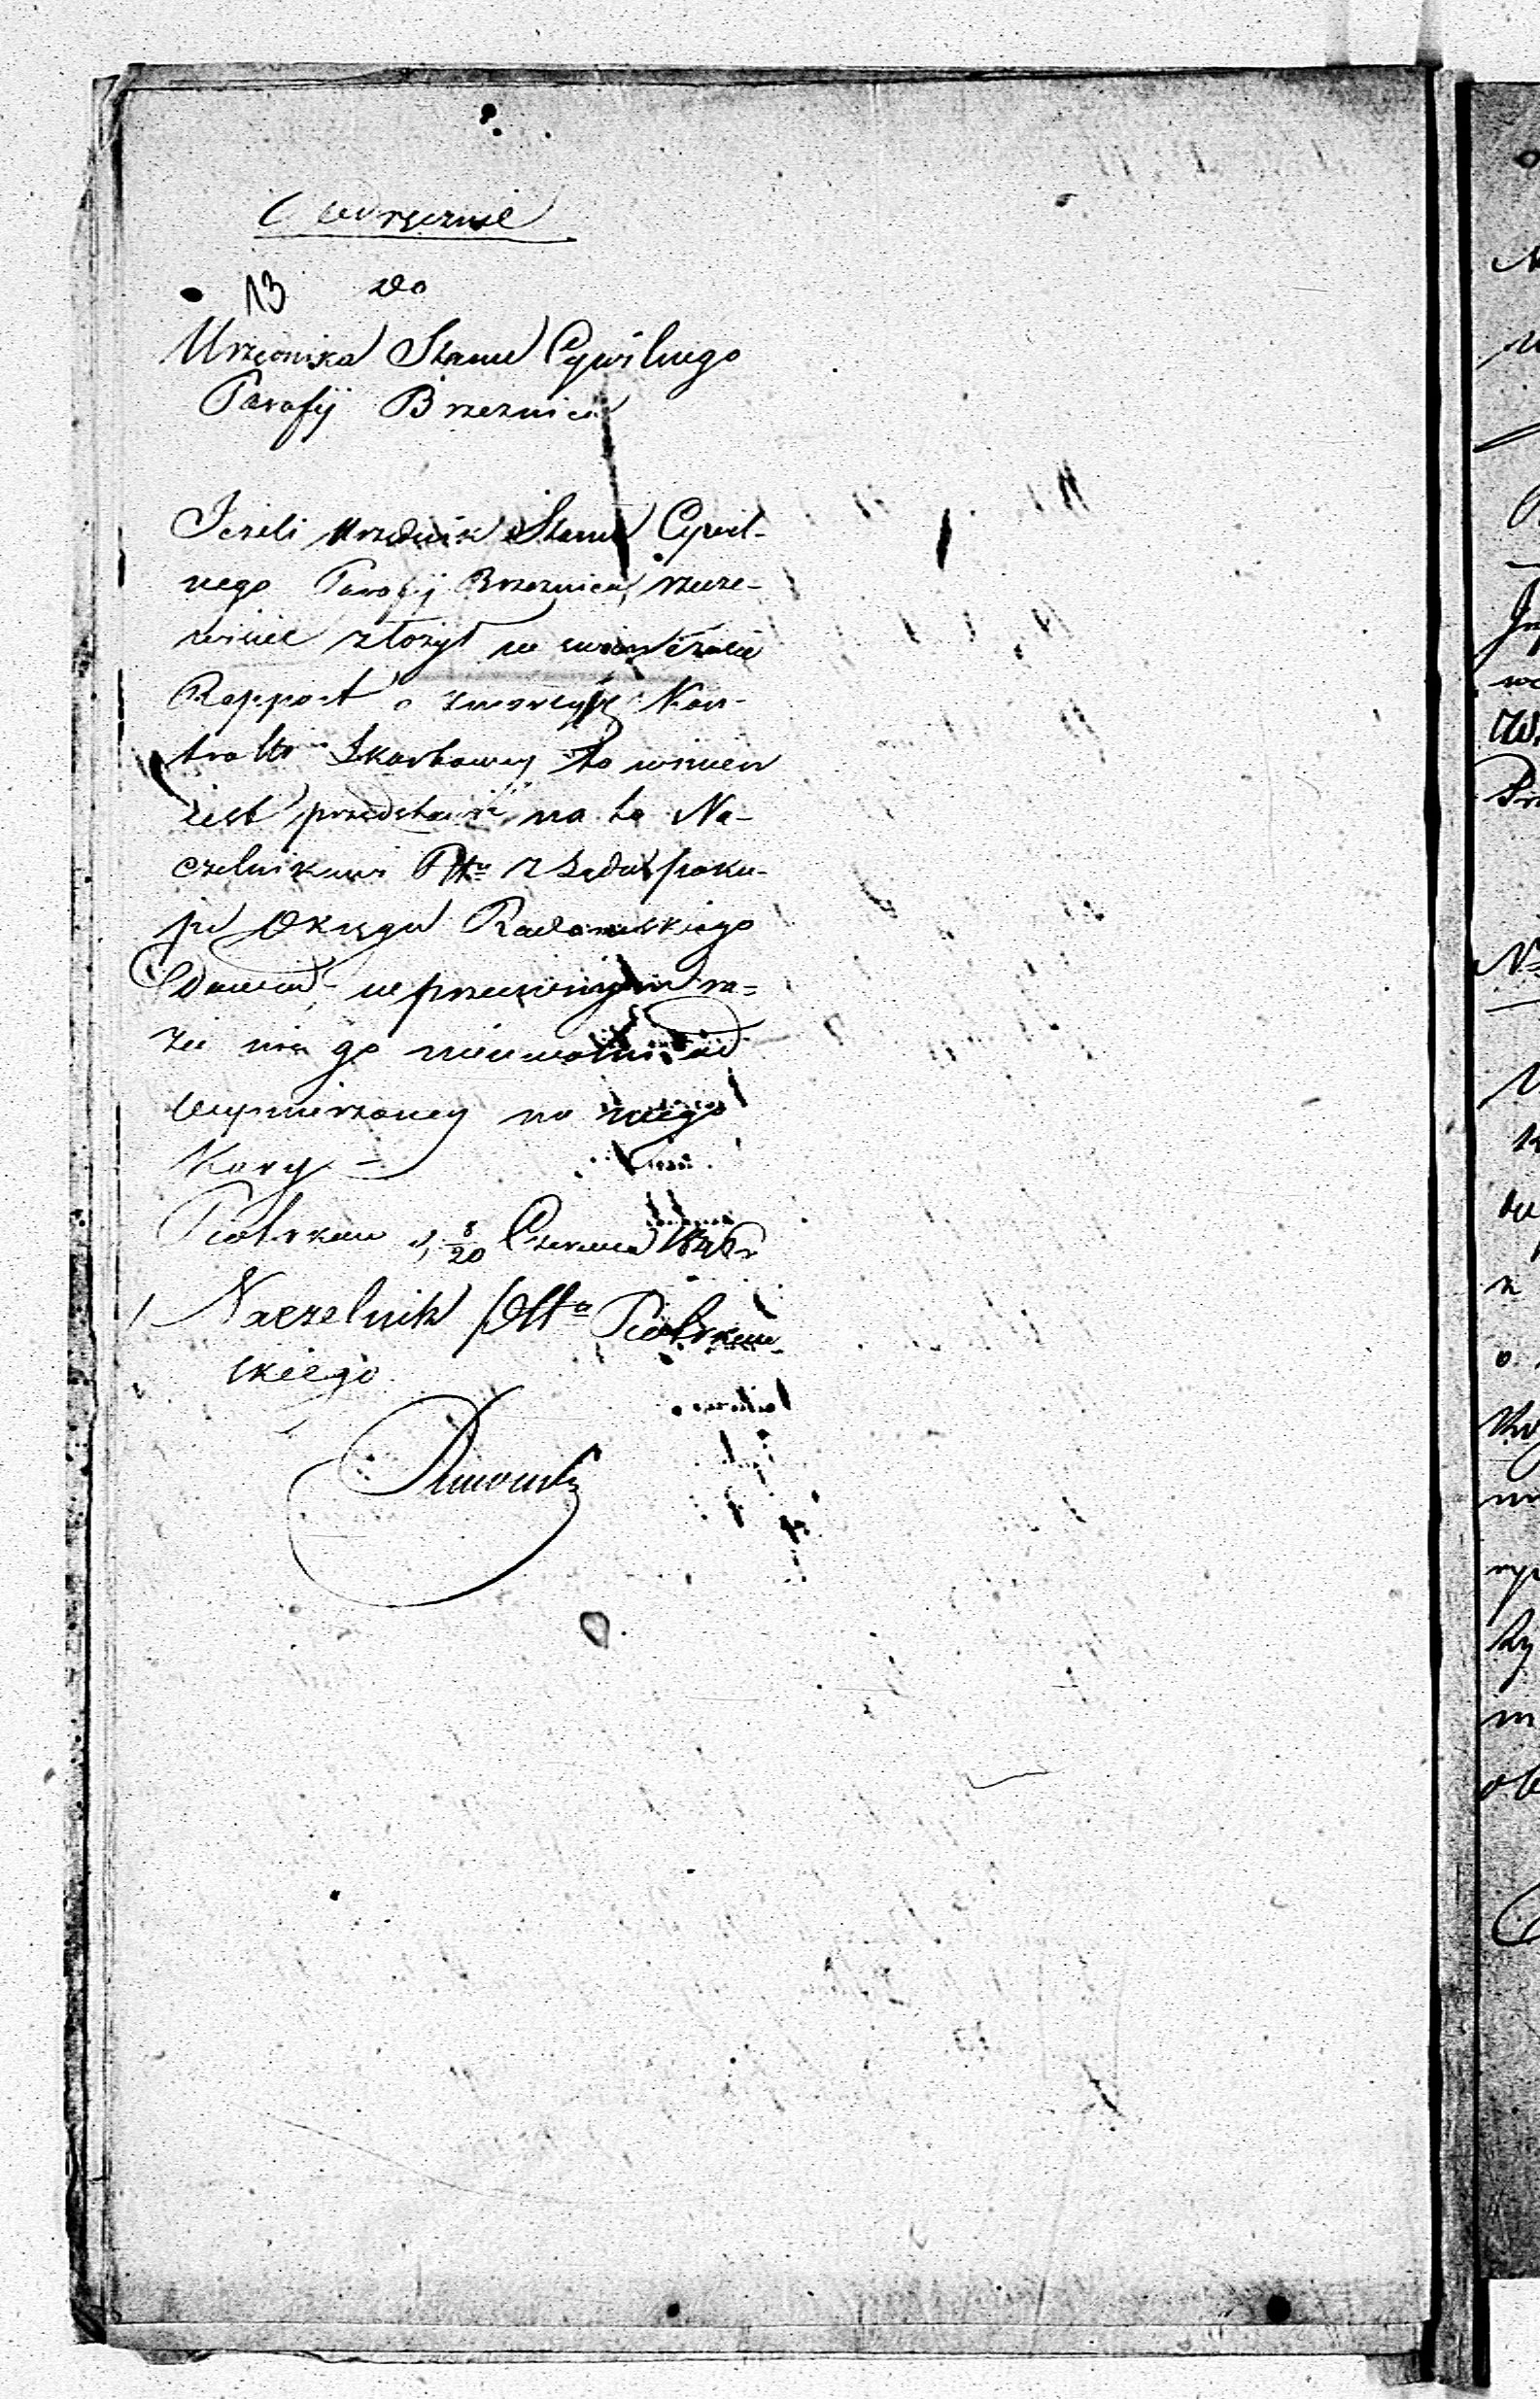 Odwrotnie
13 do
Urzędnika Stanu Cywilnego
Parafij Brzeznica
Jeżeli Urzędnik Stanu Cywil-
nego Parafij Brzeznica, rzeczy-
wiście złożył w swoim czasie
Rapport o zmarłych Kon-
troller Skarbowey to winien
jest przedstawić na to Na-
czelnikowi Pttu z Sądu poko-
ju Okręgu Radomskiego
Dowód, w przeciwnym ra-
zie nie go nieuwolni od
wymierzoney na niego
Kary –
Piotrków d. 8/20 Czerwca 1846 r
Naczelnik Pttu Piotrkow-
skiego